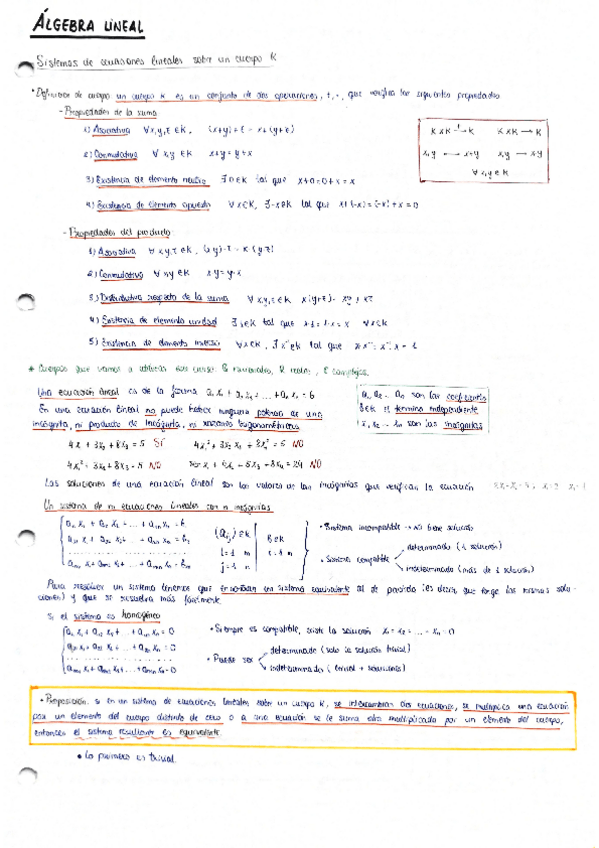 ÁLGEBRA LINEAL
Sistemas de ecuaciones lineales sobre un cuerpo K
Definición de cuerpo un cuerpo K es un conjunto de dos operaciones, +, ·, que verifica las siguientes propiedades
- Propiedades de la suma
1) Asociativa ∀ x,y,z ∈ K, (x+y)+z = x+(y+z)
2) Conmutativa ∀ x,y ∈ K x+y = y+x
3) Existencia de elemento neutro ∃ 0 ∈ K tal que x+0=0+x=x
4) Existencia de elemento opuesto ∀ x∈K, ∃ -x∈K tal que x+(-x)=(-x)+x=0
K x K → K K x K → K
x,y → x+y x,y → x·y
∀ x,y ∈ K
- Propiedades del producto
1) Asociativa ∀ x,y,z ∈ K, (x·y)·z = x·(y·z)
2) Conmutativa ∀ x,y ∈ K x·y = y·x
3) Distributiva respecto de la suma ∀ x,y,z ∈ K
4) Existencia de elemento unidad ∃ 1∈K tal que x·1=1·x=x ∀x∈K
5) Existencia de elemento inverso ∀x∈K, ∃ x⁻¹∈K tal que x·x⁻¹=x⁻¹·x=1
Cuerpos que vamos a utilizar racionales, R reales, C complejos.
Una ecuación lineal es de la forma a₁x₁ + a₂x₂ + ... + aₙxₙ = b
En una ecuación lineal no puede haber ninguna potencia de una
incógnita, ni producto de incógnita, ni razones trigonométricas
a₁, a₂ ... aₙ son los coeficientes
b∈K el término independiente
x₁, x₂ ... xₙ son las incógnitas
4x₁ + 3x₂ + 8x₃ = 5 SÍ
NO
NO
NO
Las soluciones de una ecuación lineal son los valores de las incógnitas que verifican la ecuación
Un sistema de m ecuaciones lineales con n incógnitas
a₁₁x₁ + a₁₂x₂ + ... + a₁ₙxₙ = b₁
aₘ₁x₁ + aₘ₂x₂ + ... + aₘₙxₙ = bₘ
• Sistema incompatible → no tiene solución
• Sistema compatible
determinado (1 solución)
indeterminado (más de 1 solución)
Para resolver un sistema tenemos que encontrar un sistema equivalente al de partida (es decir, que tenga las mismas solu-
ciones) y que se resuelva más fácilmente.
Si el sistema es homogéneo
a₁₁x₁ + a₁₂x₂ + ... + a₁ₙxₙ = 0
aₘ₁x₁ + aₘ₂x₂ + ... + aₘₙxₙ = 0
• Siempre es compatible, existe la solución x₁ = x₂ = ... = xₙ = 0
• Puede ser
determinado (solo la solución trivial)
indeterminado (trivial + soluciones)
• Proposición si en un sistema de ecuaciones lineales sobre un cuerpo K, se intercambian dos ecuaciones, se multiplica una ecuación
por un elemento del cuerpo distinto de cero o a una ecuación se le suma otra multiplicada por un elemento del cuerpo,
entonces el sistema resultante es equivalente.
• La primera es trivial.